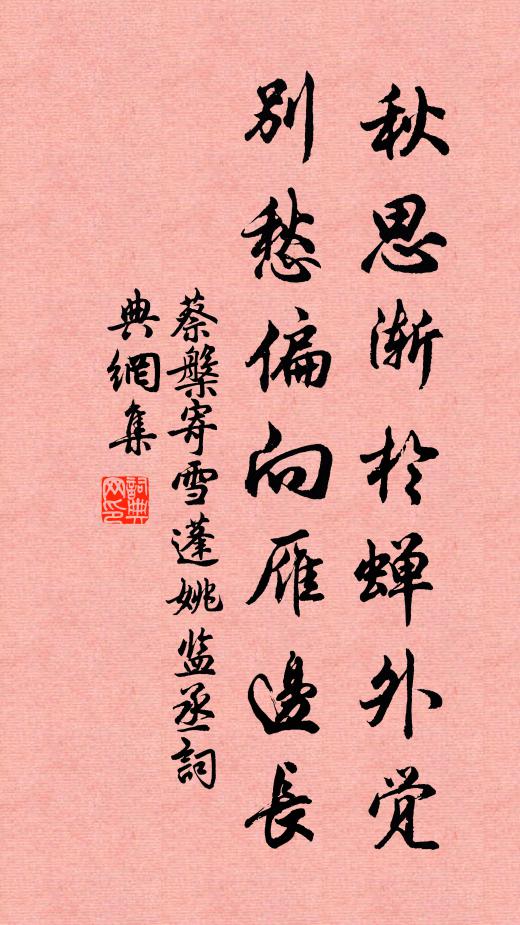 秋思渐於蝉外觉
别愁偏向雁邊長
蔡槃寄雪蓬姚监丞詞
典網集
詞典网印